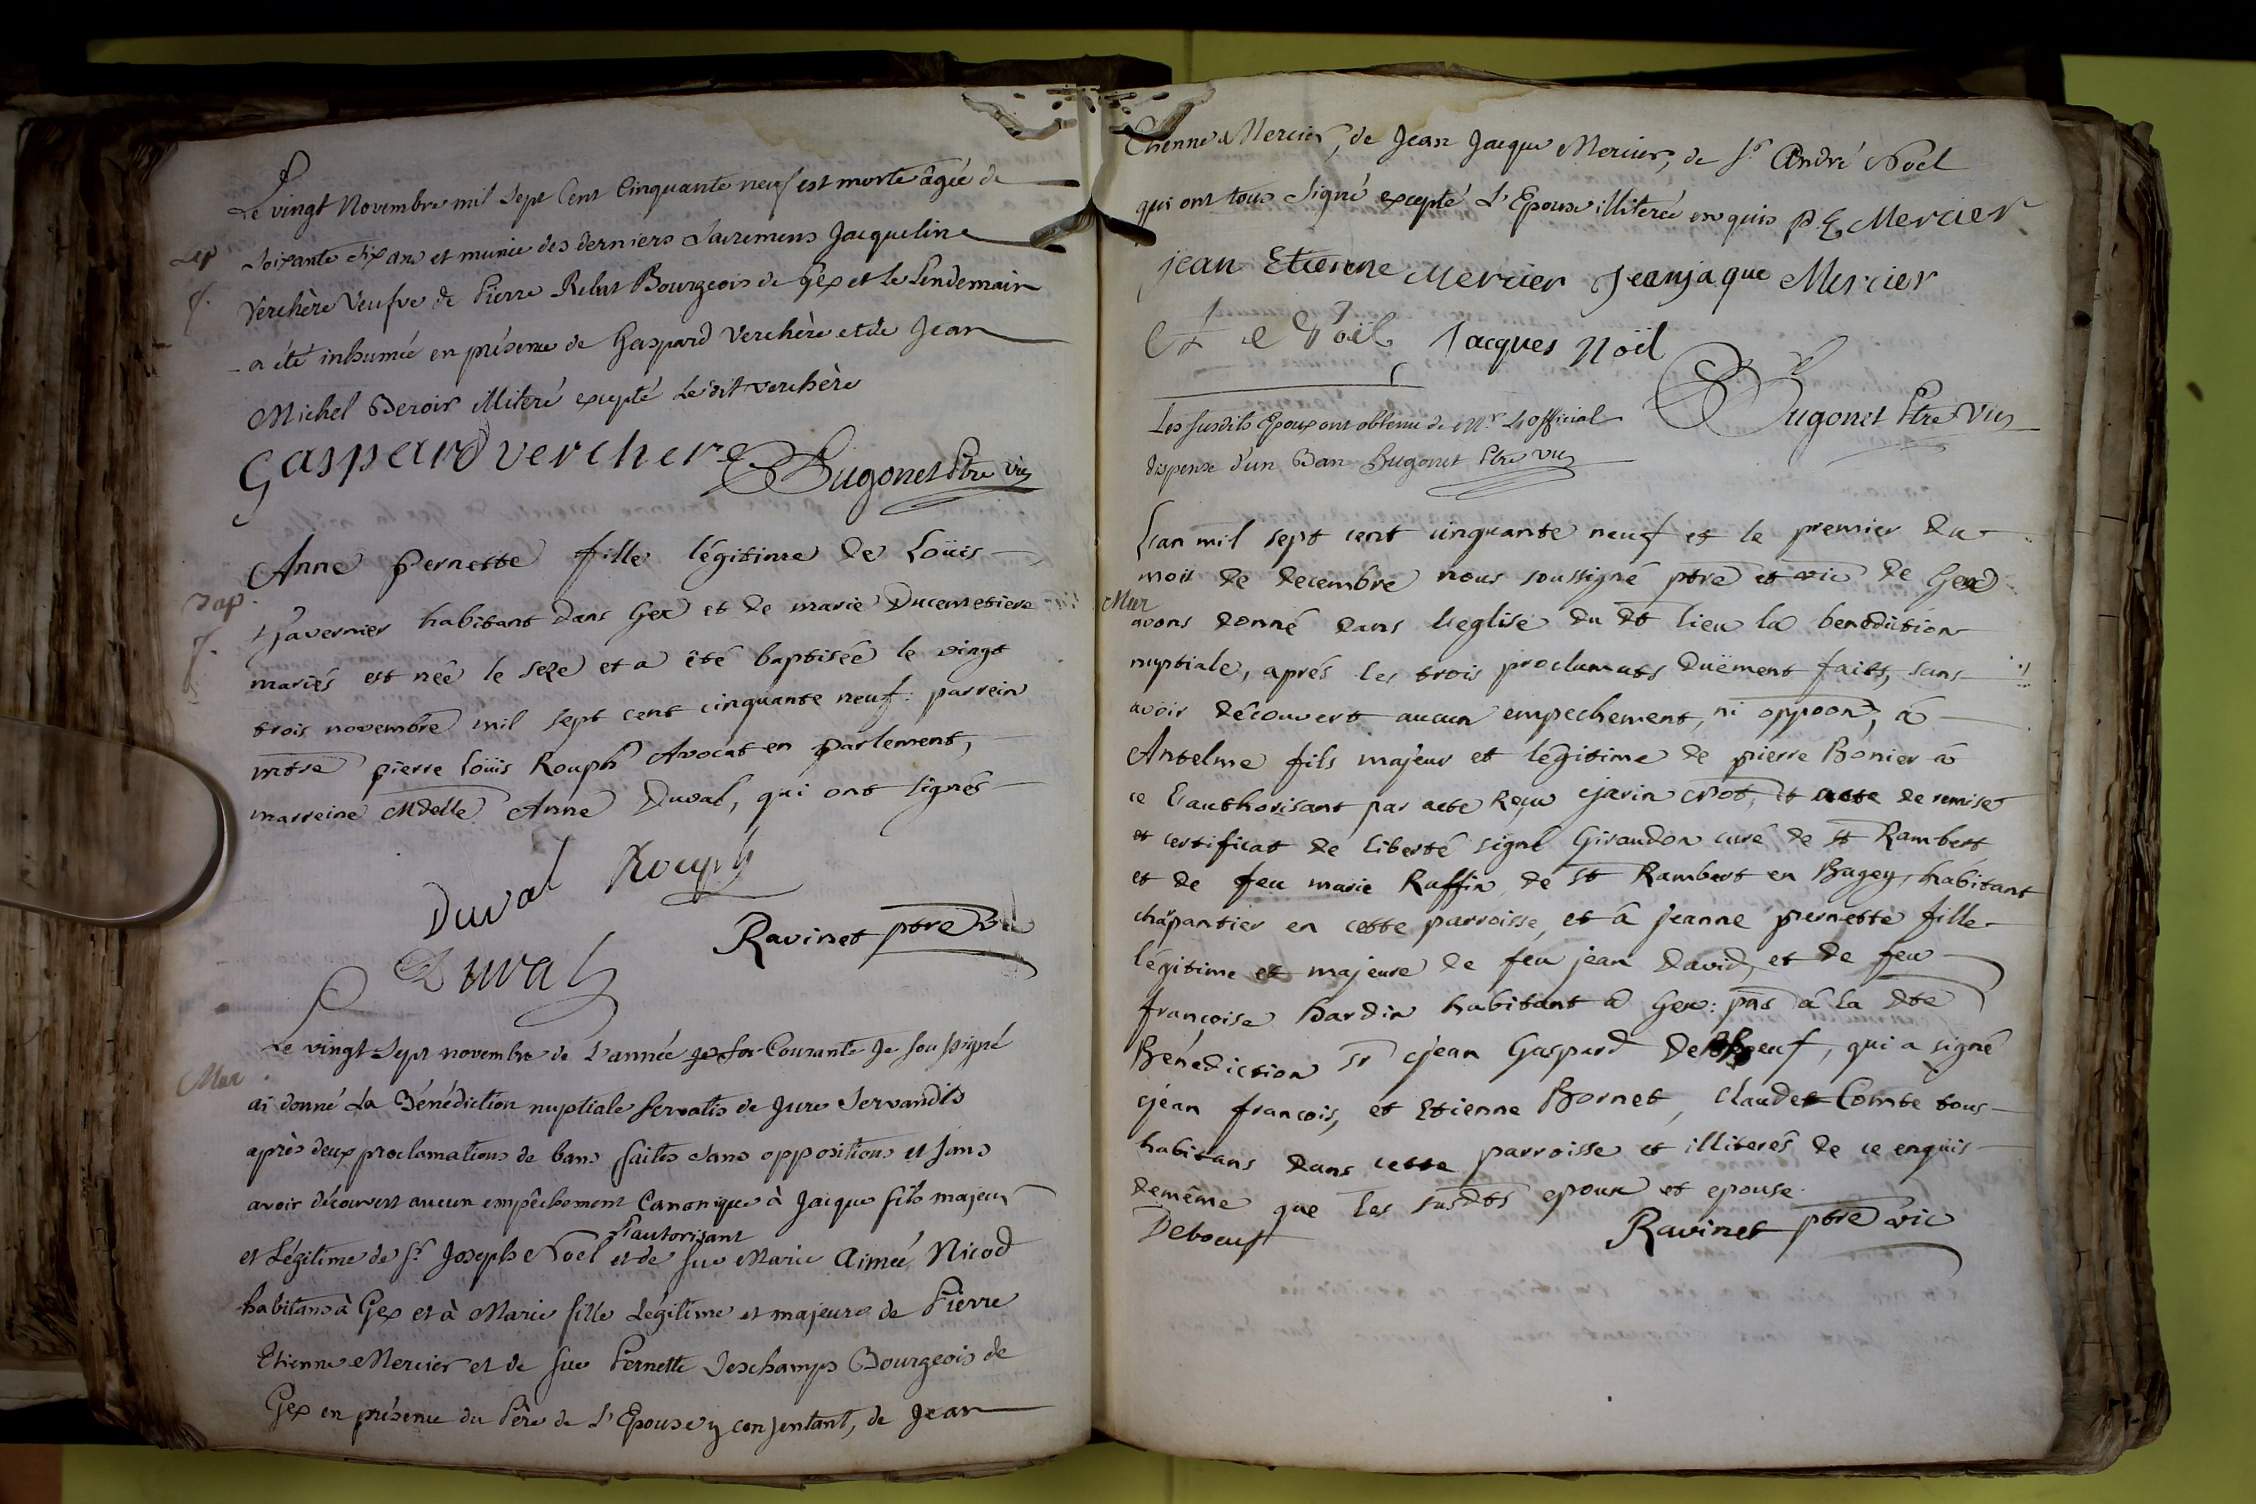 Le vingt Novembre mil Sept Cent Cinquante neuf est morte âgée de
Sep
Soixante dix ans et munie des derniers Sacremens Jacqueline
f.
Verchère Veufve de Pierre Relut Bourgeois de Gex et le Lendemain
a été inhumée en présence de Gaspard Verchère et de Jean
Michel Beroir illiteré excepté Ledit verchère
Gaspard verchere Bugonet Ptre vic
Anne pernette fille légitime de Loüis
Bap.
Tavernier habitant dans Gex et de marie Ducemetiere
f.
mariés est née le seze et a êté baptisée le vingt
trois novembre mil sept cent cinquante neuf: parrein
mtre pierre Loüis Rouph Avocat en parlement,
marreine Mdelle Anne Duval, qui ont signés
Duval Rouph
Ravinet ptre vic
Duval
Le vingt Sept novembre de L'année Courante Je Soussigné
Mar
ai donné La Bénédiction nuptiale Servatis de Jure Servandis
après deux proclamations de bans faites Sans oppositions et sans
avoir découvert aucun empêchement Canonique à Jacque fils majeur
L'autorisant
et Légitime de Sr. Joseph Noel et de fue Marie Aimée Nicod
habitans à Gex et à Marie fille Légitime et majeure de Pierre
Etienne Mercier et de fue Pernette Deschamps Bourgeois de
Gex en présence du Père de L'Epouse y consentant, de Jean
Etienne Mercier, de Jean Jacque Mercier, de Sr André Noel
qui ont tous Signé excepté L'Epouse illiterée enquis P. E Mercier
jean Etienne Mercier Jean jaque Mercier
Noël Jacques Noël
Bugonet Ptre Vic
Les Susdits Epoux ont obtenu de Mr. L'official
dispense d'un Ban Bugonet Ptre vic
L'an mil sept cent cinquante neuf et le premier du
mois de decembre nous soussigné ptre et vic de Gex
Mar
avons donné dans l'eglise du dt lieu la benediction
nuptiale, aprés les trois proclamats duëment faits, sans
avoir découvert aucun empechement, ni oppoon, à
Antelme fils majeur et légitime de pierre Bonier à
ce L'authorisant par acte Reçu Not, et acte de remise
et certificat de liberté signé Giraudon curé de St Rambert
et de feu marie Ruffin de St Rambert en Bugey, habitant
charpantier en cette parroisse, et à jeanne pernette fille
légitime et majeure de feu jean David, et de feu
françoise Hardin habitant à Gex: pns à la dte
Bénédiction Sr jean Gaspard Deboeuf, qui a signé
jean françois, et Etienne Bornet, Claude Comte tous
habitans dans cette parroisse et illiterés de ce enquis
demême que les susdts epoux et epouse.
Deboeuf Ravinet ptre vic